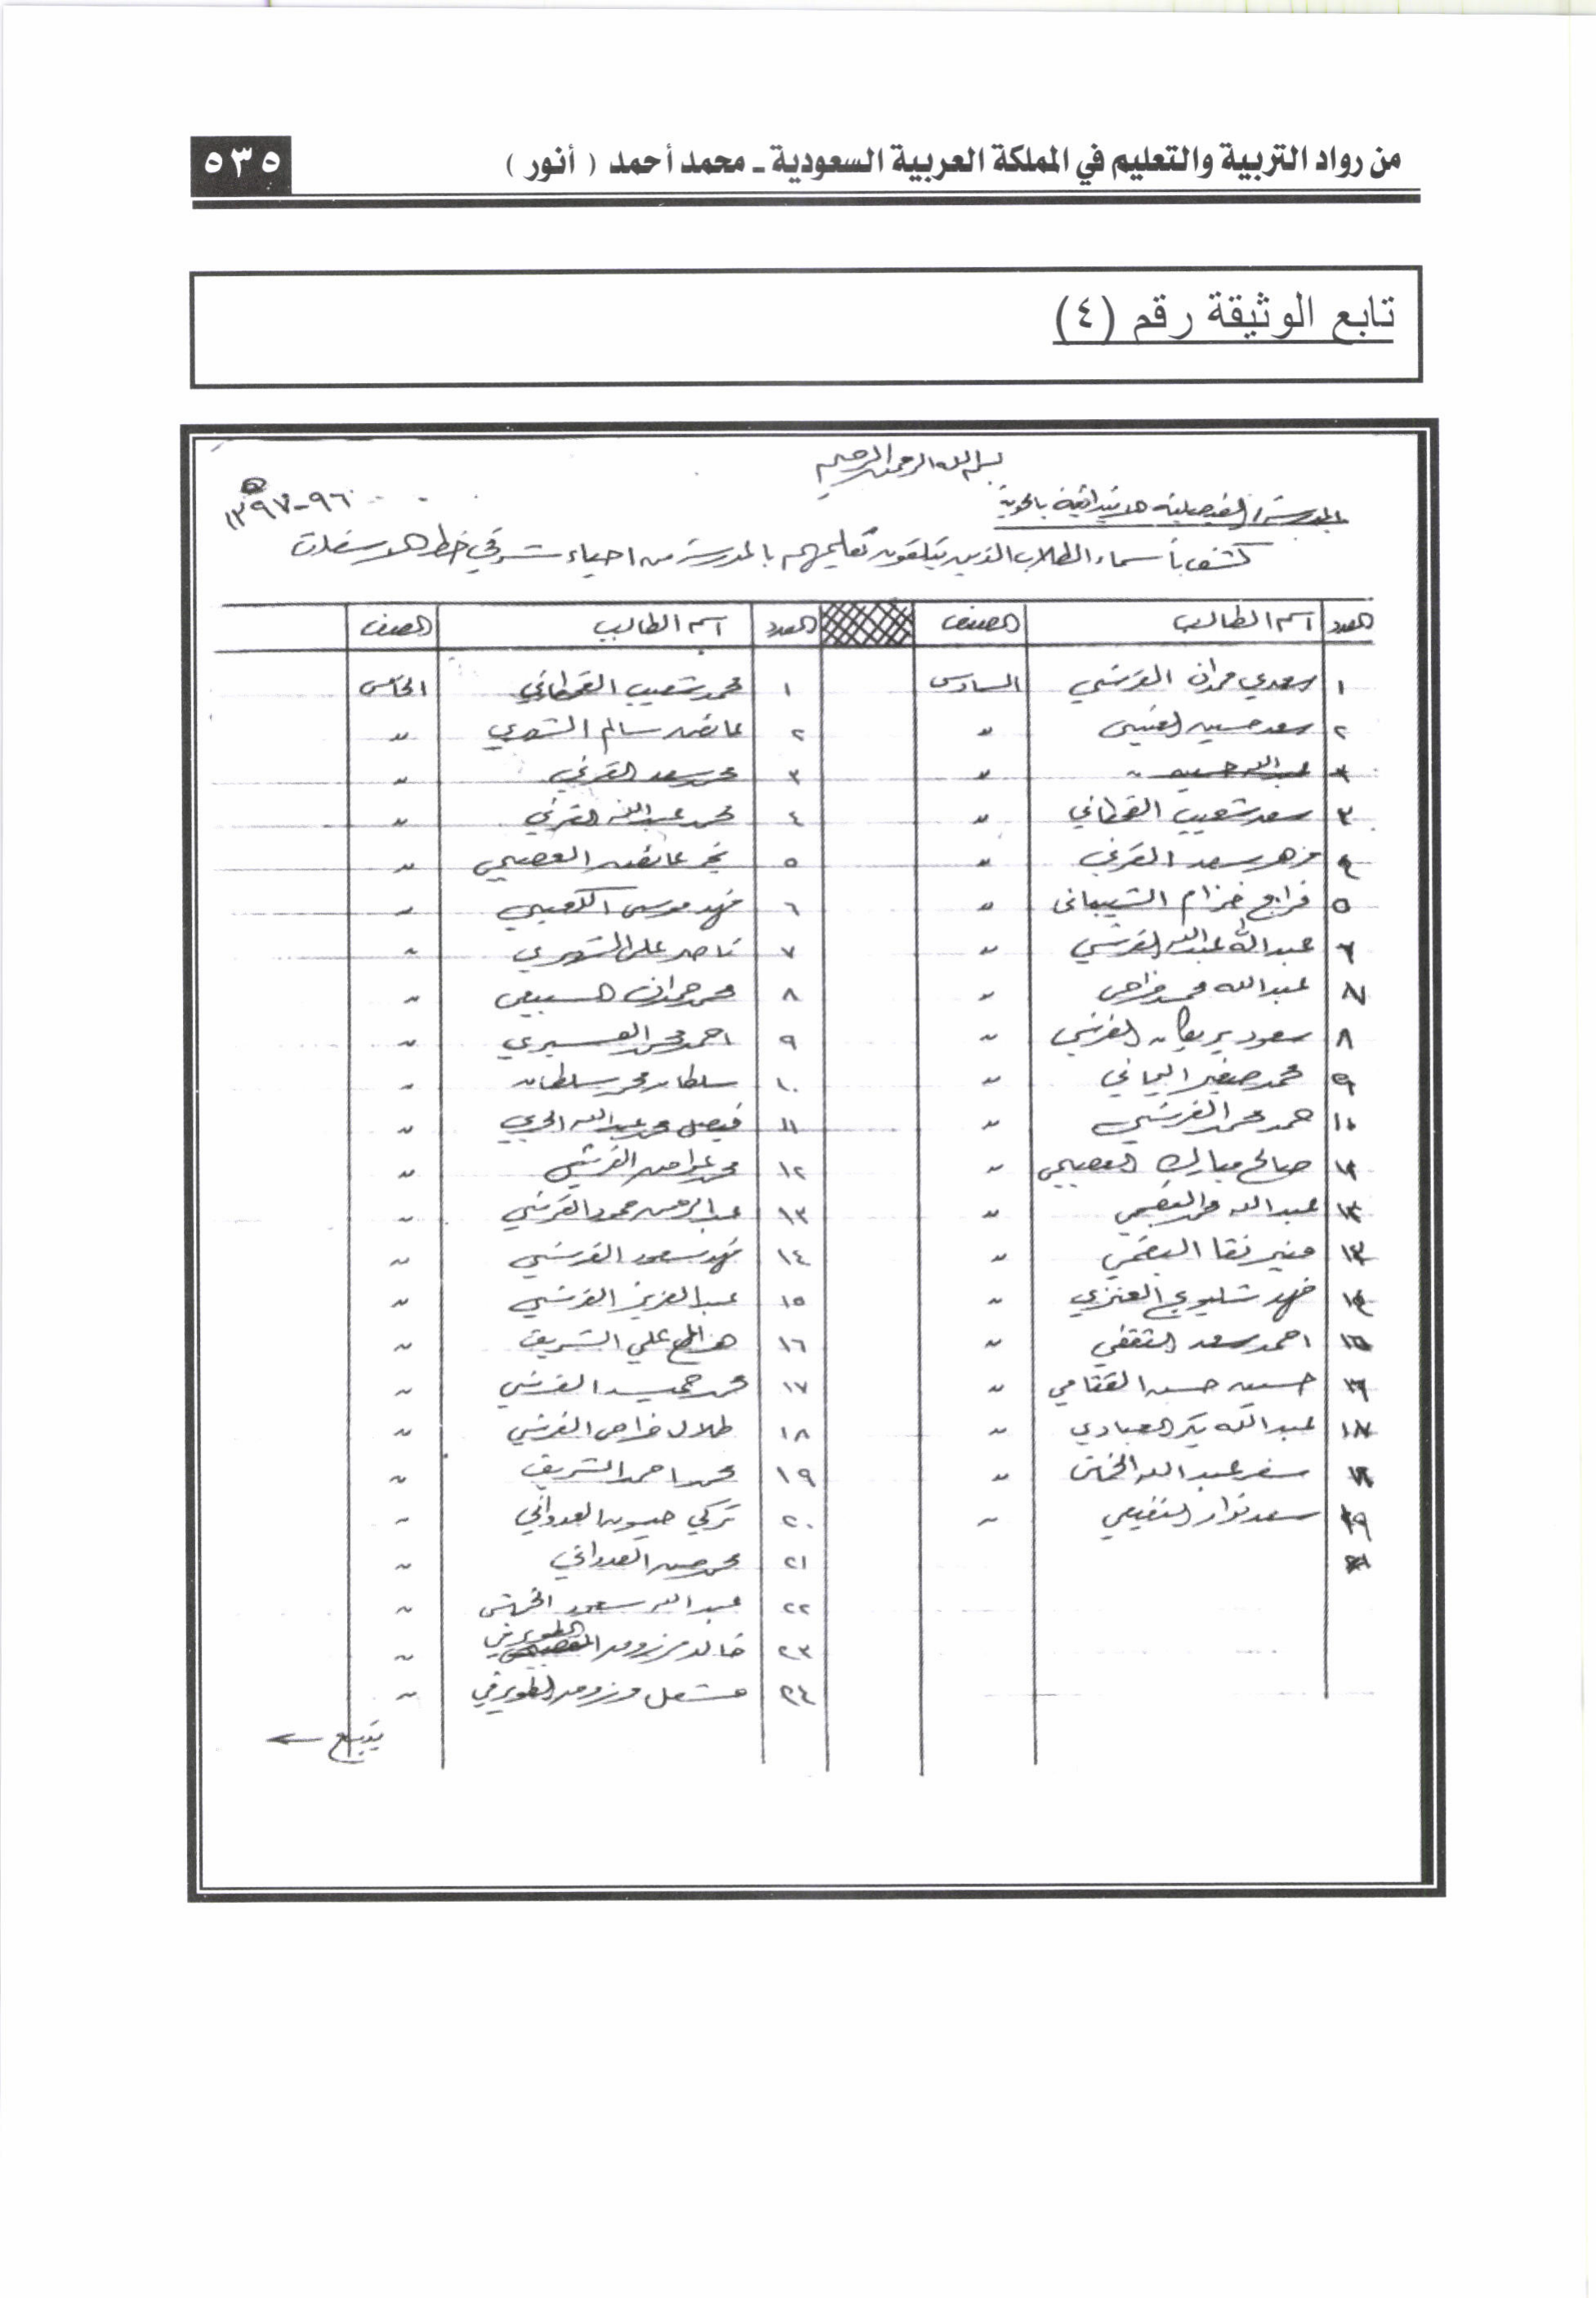 من رواد التربية والتعليم في المملكة العربية السعودية ـ محمد أحمد ( أنور )
٥٣٥
تابع الوثيقة رقم (٤)
بسم الله الرحمن الرحيم
المدرسة الفيصلية الابتدائية بالحوية
٩٦-١٣٩٧ه
كشف بأسماء الطلاب الذين يتلقون تعليمهم بالمدرسة من احياء شرقي خط الاسفلت
العدد اسم الطالب الصف العدد اسم الطالب الصف
١ سعدي حمدان القرشي السادس ١ محمد شعيب القحطاني الخامس
٢ سعد حسين العتيبي " ٢ عايض سالم الشهري "
٣ عبدالله حسين " " ٣ محمد سعد القرني "
٣ سعد شعيب القحطاني " ٤ محمد عبدالله القرني "
٤ مزهر سعد القرني " ٥ عايض العصيمي "
٥ فراج خزام الشيباني " ٦ فهد موسى الكعبي "
٦ عبدالله عبدالله القرشي " ٧ ناصر علي الشهري "
٧ عبدالله محمد " ٨ محمد حمدان السبيعي "
٨ سعود بريكان القرشي " ٩ احمد محمد العسيري "
٩ محمد صغير اليماني " ١٠ سلطان محمد سلطان "
١٠ حمد محمد القرشي " ١١ فيصل محمد عبدالله الحربي "
صالح مبارك العصيمي " ١٢ محمد القرشي "
عبدالله محمد البقمي " ١٣ عبدالرحمن حمود القرشي "
١٣ منير نقا البقمي " ١٤ فهد سعود القرشي "
١٤ فهد شليويح العنزي " ١٥ عبدالعزيز القرشي "
١٥ احمد سعد الثقفي " ١٦ هزاع علي الشريف "
١٦ حسين حسن القثامي " ١٧ محمد حميد القرشي "
١٧ عبدالله بكر العبادي " ١٨ طلال القرشي "
سفر عبدالله " ١٩ محمد احمد الشريف "
١٩ سعد نوار النفيعي " ٢٠ تركي العدواني "
٢١ محمد حسن العدواني "
٢٢ عبدالله سعود "
٢٣ خالد مرزوق الطويرقي "
٢٤ مشعل مرزوق الطويرقي "
يتبع ←